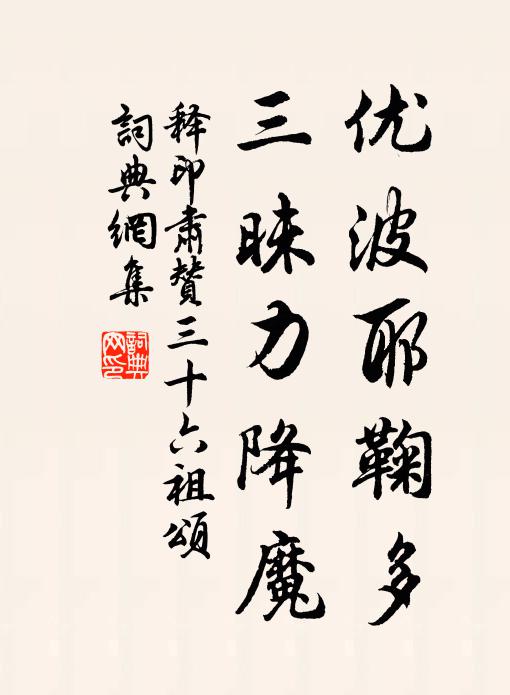 优波耶鞠多
三昧力降魔
释印肃赞三十六祖頌
詞典網集
詞典
网印